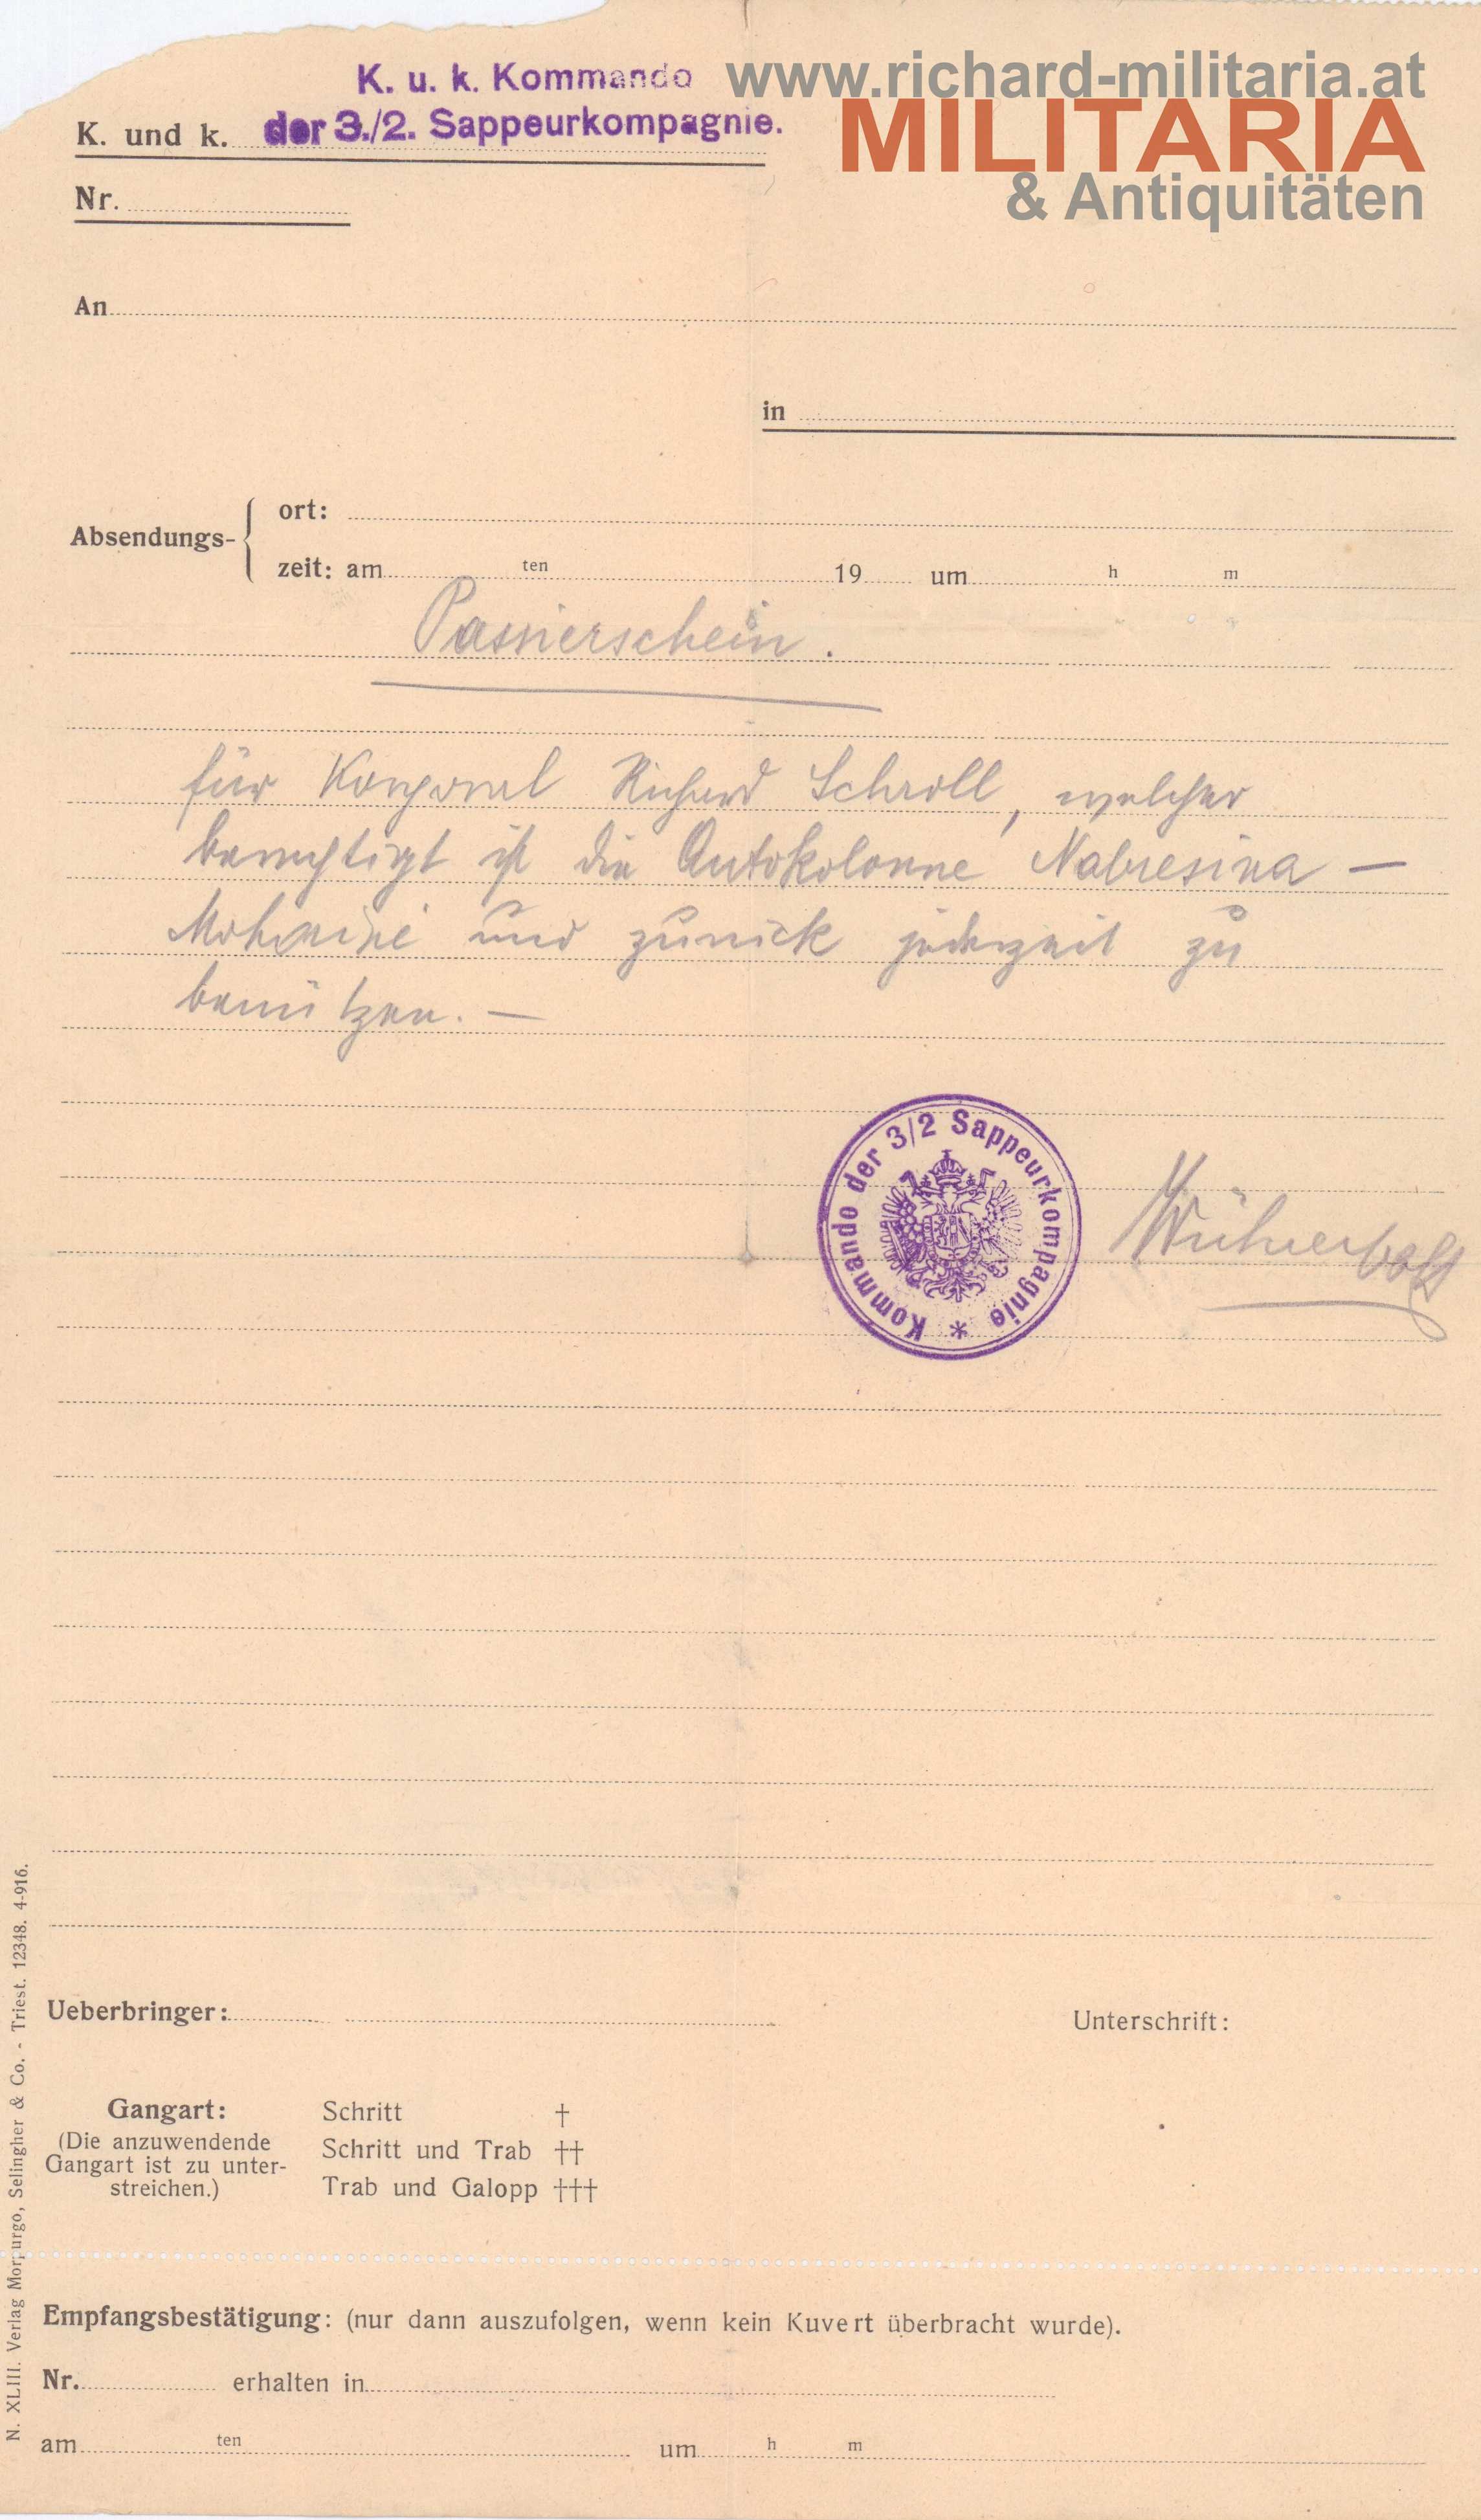 K. u. k. Kommando
www.richard-militaria.at
MILITARIA
& Antiquitäten
K. und k. der 3./2. Sappeurkompagnie.
Nr.
An
in
Absendungs-
ort:
zeit: am ten 19 um h m
Passierschein.
für Korporal Richard Schroll, welcher
berechtigt ist die Autokolonne Nabresina —
und zurück jederzeit zu
benützen. —
Kommando der 3/2 Sappeurkompagnie *
Ueberbringer:
Unterschrift:
Gangart:
(Die anzuwendende
Gangart ist zu unter-
streichen.)
Schritt †
Schritt und Trab ††
Trab und Galopp †††
Empfangsbestätigung: (nur dann auszufolgen, wenn kein Kuvert überbracht wurde).
Nr. erhalten in
am ten um h m
N. XLIII. Verlag Morpurgo, Selingher & Co. - Triest. 12348. 4-916.